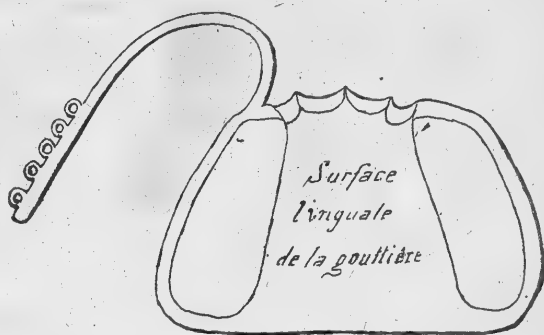 Surface
linguale
de la gouttière